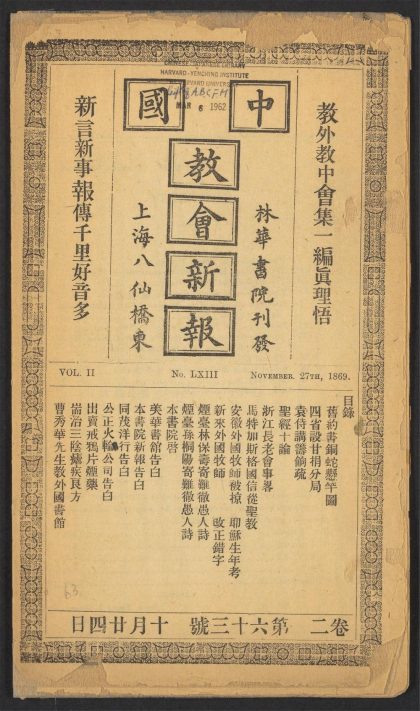 HARVARD-YENCHING INSTITUTE
HARVARD UNIVERSITY
MAR 6 1962
中國
教會新報
教外教中會集一編眞理悟
林華書院刊發
上海八仙橋東
新言新事報傳千里好音多
VOL. II No. LXIII NOVEMBER. 27TH, 1869.
目錄
舊約書銅蛇懸竿圖
四省設廿捐分局
袁侍講籌餉疏
聖經十論
浙江長老會事畧
馬特加斯格國信從聖教
安徽外國牧師被掠 耶穌生年考
新來外國牧師 改正錯字
煙臺林保壽寄難徹愚人詩
煙臺孫桐陽寄難徹愚人詩
本書院啓
美華書館告白
本書院新報告白
同茂洋行告白
公正火輪公司告白
出賣戒鴉片煙藥
耑治三陰瘧疾良方
曹秀華先生教外國書館
卷二 第六十三號 十月廿四日
63